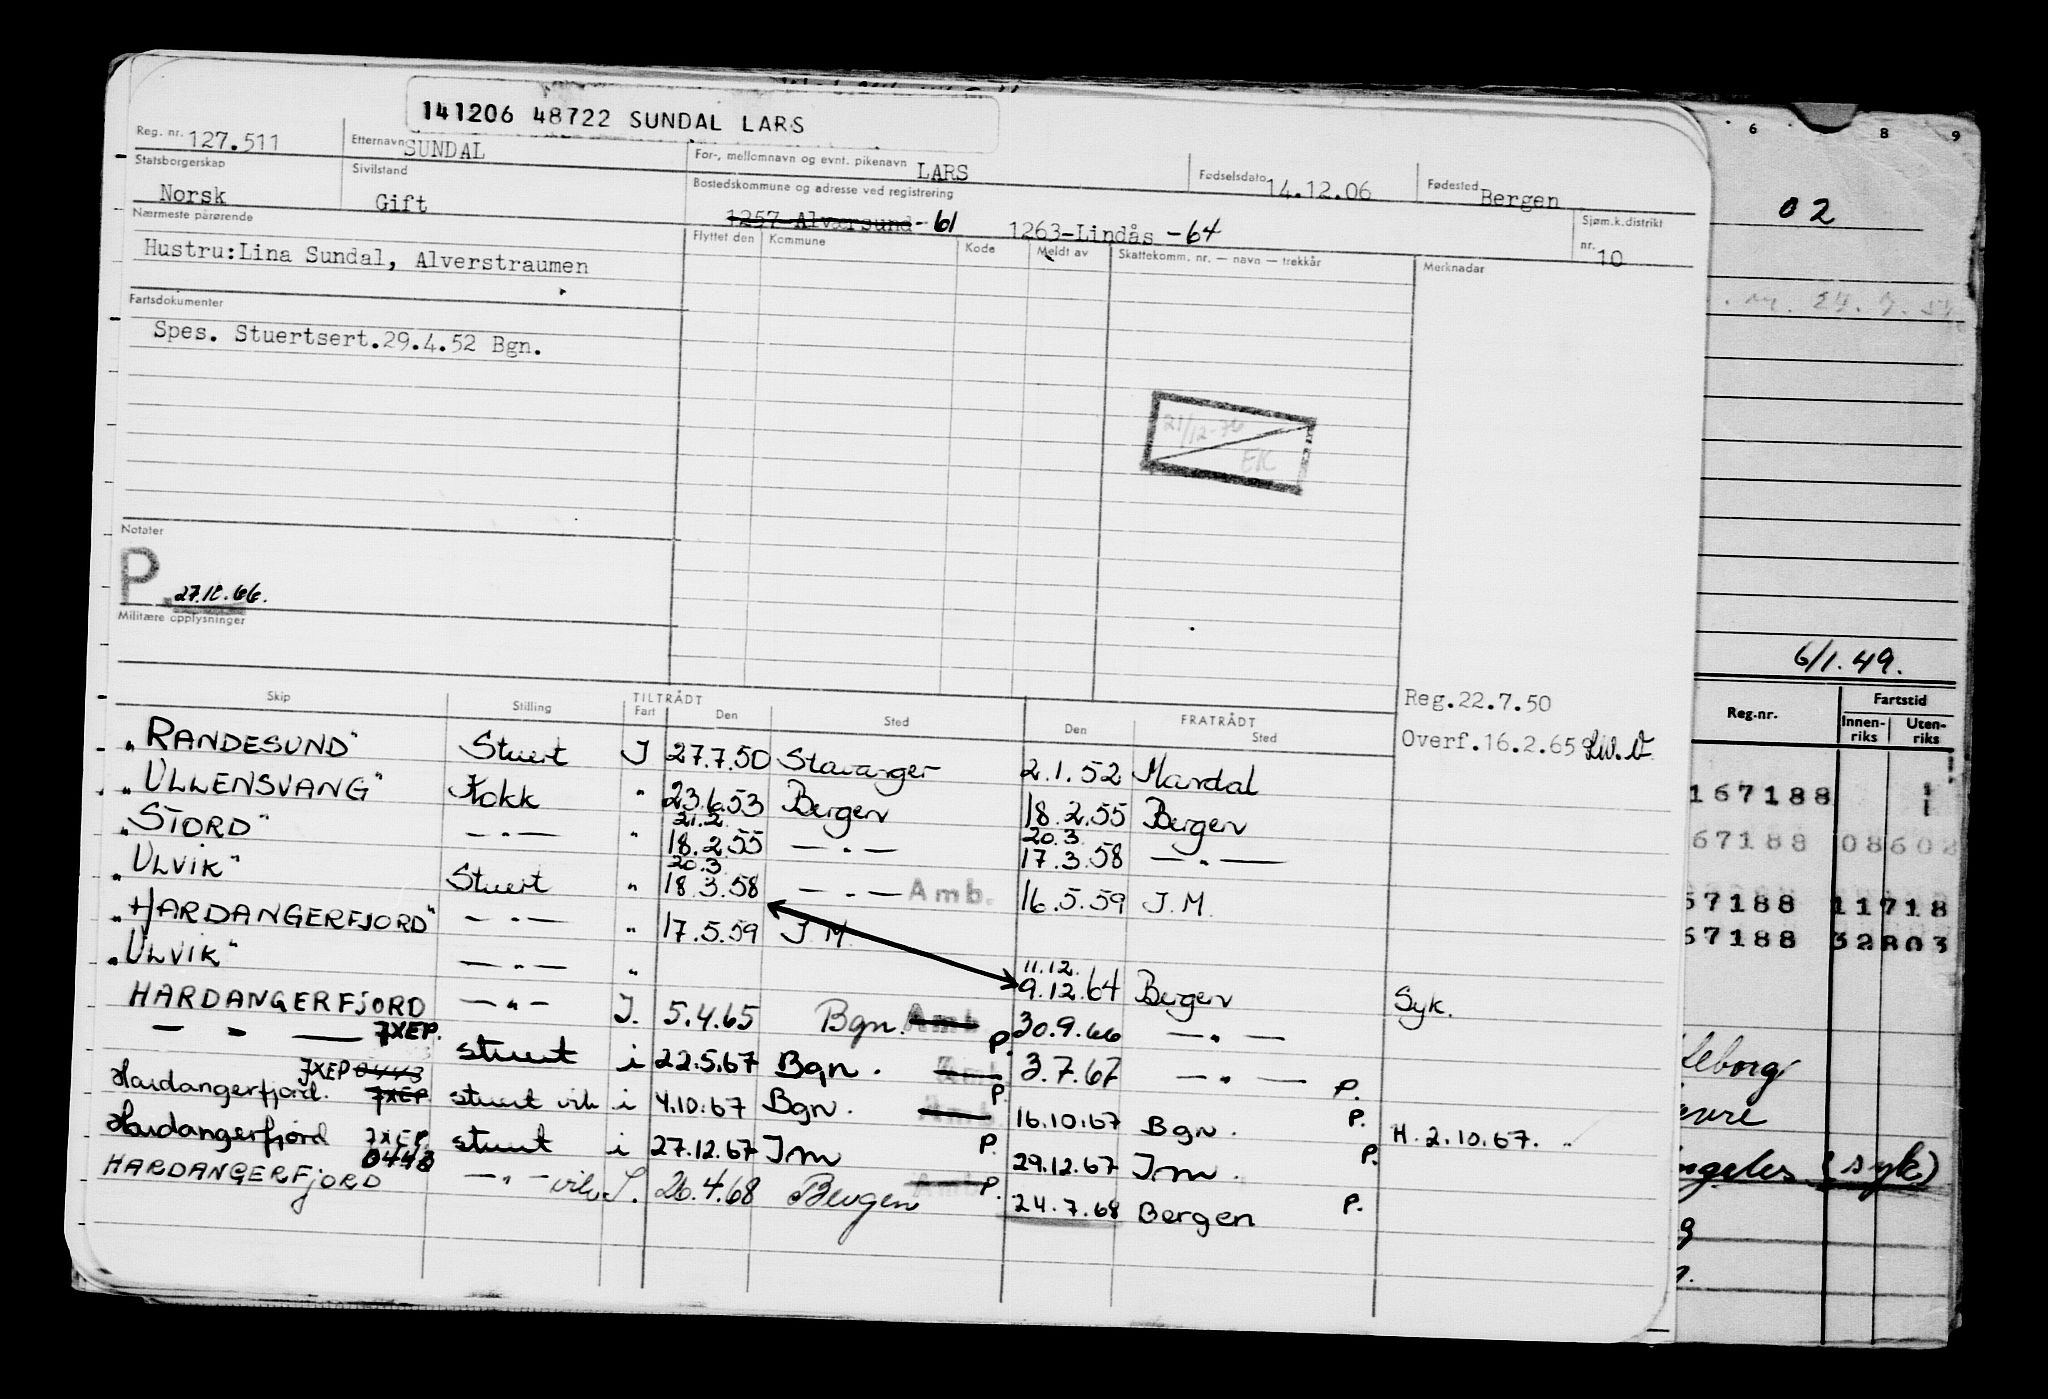 141206 48722 SUNDAL LARS
Reg. nr. 127.511 Etternavn SUNDAL For-, mellomnavn og evnt. pikenavn LARS Fødselsdato 14.12.06 Fødested Bergen
Statsborgerskap Norsk Sivilstand Gift Bostedskommune og adresse ved registrering 1257-Alversund -61 1263-Lindås -64 Sjøm.k.distrikt nr. 10
Nærmeste pårørende Flyttet den Kommune Kode Meldt av Skattekomm. nr. — navn — trekkår Merknadar
Hustru:Lina Sundal, Alverstraumen
Fartsdokumenter
Spes. Stuertsert.29.4.52 Bgn.
21/12-76
EK
Notater
P. 27.12.66.
Militære opplysninger
Reg.22.7.50
Overf.16.2.65
Skip Stilling TILTRÅDT Fart Den Sted FRATRÅDT Den Sted
"RANDESUND" Stuert I 27.7.50 Stavanger 2.1.52 Mandal
"ULLENSVANG" Kokk " 23.6.53 Bergen 18.2.55 Bergen
21.2. 20.3.
"STORD" — " — " 18.2.55 — " — 17.3.58 — " —
20.3.
"ULVIK" Stuert " 18.3.58 — " — Amb. 16.5.59 I.M.
"HARDANGERFJORD" — " — " 17.5.59 I M.
11.12.
"ULVIK" — " — " 9.12.64 Bergen Syk.
HARDANGERFJORD — " — I. 5.4.65 Bgn. Amb. 30.9.66 — " —
— " — JXEP. stuert i 22.5.67 Bgn. Amb. P. 3.7.67 — " — P.
JXEP 0443
Hardangerfjord. JXEP stuert vik i 4.10.67 Bgn. Amb. P. 16.10.67 Bgn. P. H. 2.10.67.
Hardangerfjord JXEP. stuert i 27.12.67 Im P. 29.12.67 Im. P.
0443
HARDANGERFJORD — " — vik I. 26.4.68 Bergen Amb. P. 24.7.68 Bergen P.
6 8 9
02
6/1.49.
Reg-nr. Fartstid
Innen-riks Uten-riks
167188
67188 08602
57188 11718
57188 32803
(syk)